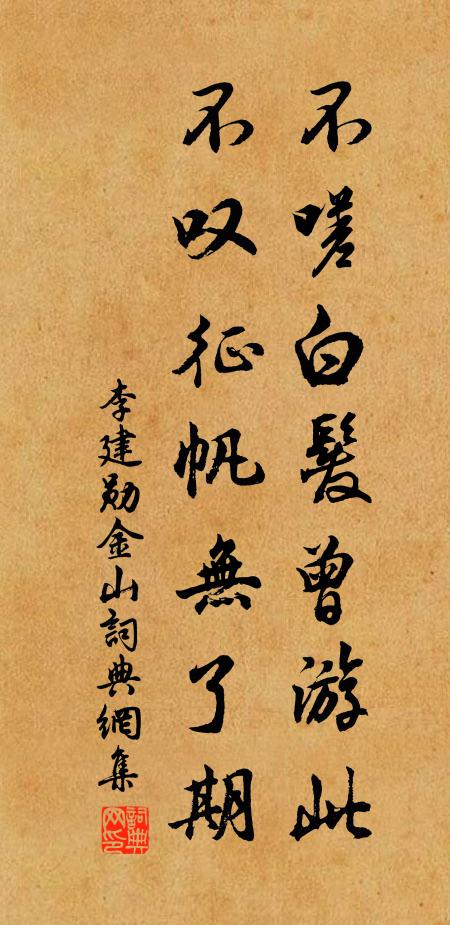 不嗟白髮曾游此
不叹征帆無了期
李建勋金山詞典網集
詞典网印